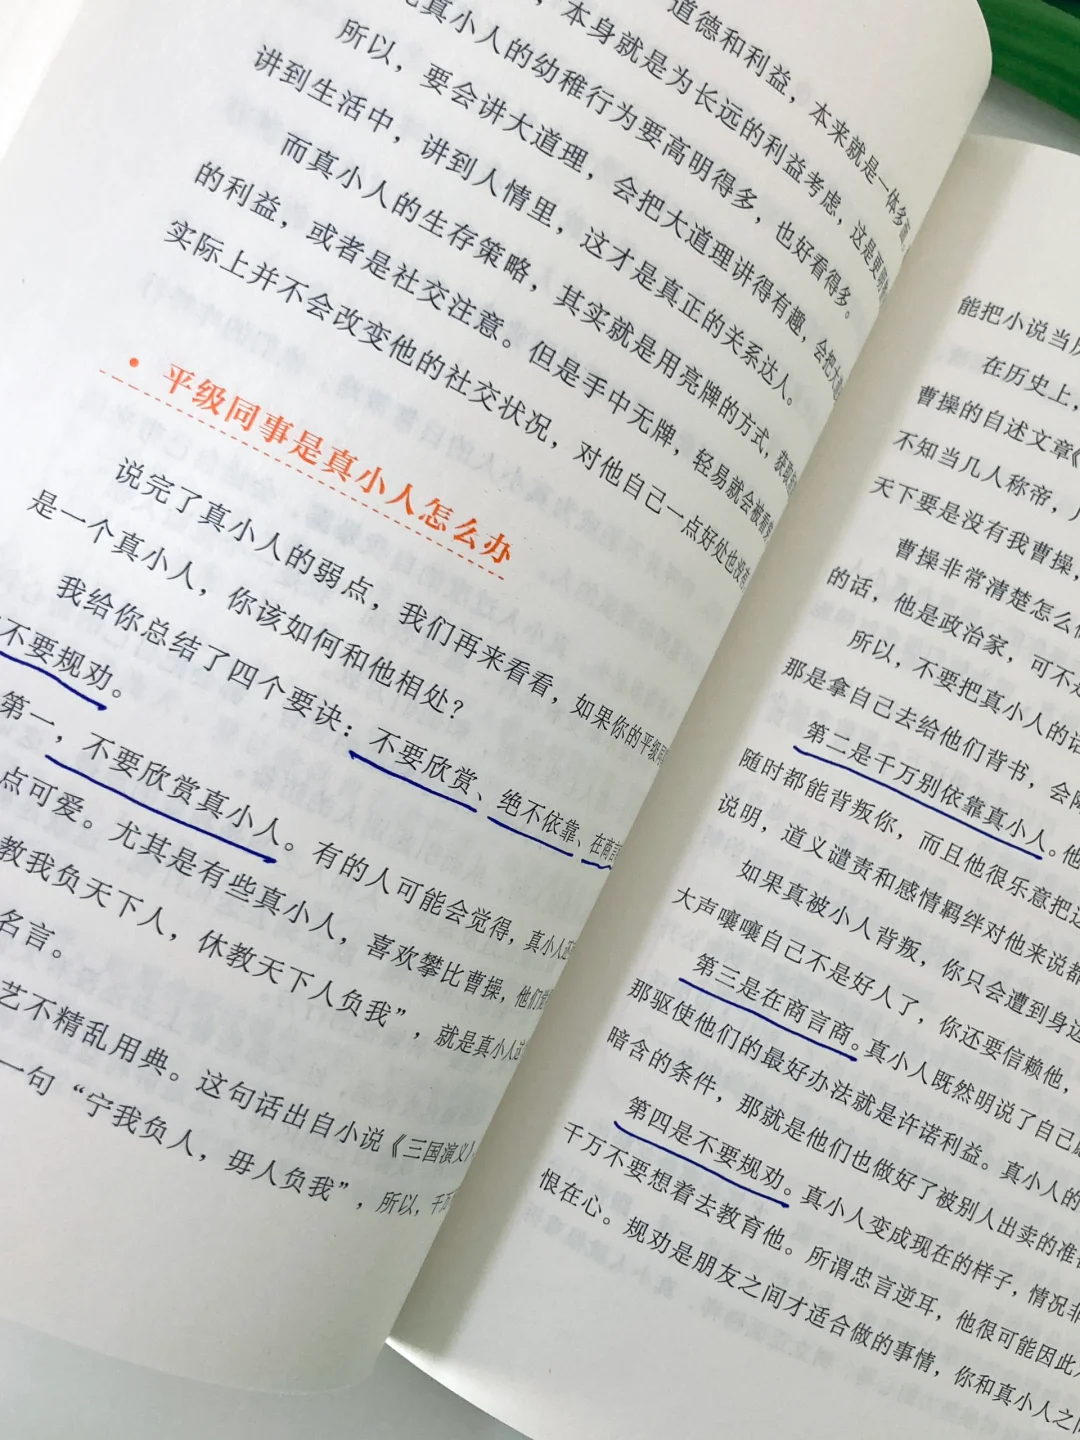 道德和利益，本来就是一体多面
，本身就是为长远的利益考虑，这是更高
真小人的幼稚行为要高明得多，也好看得多。
所以，要会讲大道理，会把大道理讲得有趣，会把大
讲到生活中，讲到人情里，这才是真正的关系达人。
而真小人的生存策略，其实就是用亮牌的方式，获取
的利益，或者是社交注意。但是手中无牌，轻易就会被看穿
实际上并不会改变他的社交状况，对他自己一点好处也没有
• 平级同事是真小人怎么办
说完了真小人的弱点，我们再来看看，如果你的平级同
是一个真小人，你该如何和他相处？
我给你总结了四个要诀：不要欣赏、绝不依靠、在商言
不要规劝。
第一，不要欣赏真小人。有的人可能会觉得，真小人还
点可爱。尤其是有些真小人，喜欢攀比曹操，他们觉
教我负天下人，休教天下人负我”，就是真小人
名言。
艺不精乱用典。这句话出自小说《三国演义》
一句“宁我负人，毋人负我”，所以，千
能把小说当
在历史上，
曹操的自述文章《
不知当几人称帝，
天下要是没有我曹操，
曹操非常清楚怎么
的话，他是政治家，可不
所以，不要把真小人的话
那是拿自己去给他们背书，会
第二是千万别依靠真小人。他
随时都能背叛你，而且他很乐意把
说明，道义谴责和感情羁绊对他来说都
如果真被小人背叛，你只会遭到身边
大声嚷嚷自己不是好人了，你还要信赖他，
第三是在商言商。真小人既然明说了自己
那驱使他们的最好办法就是许诺利益。真小人的
暗含的条件，那就是他们也做好了被别人出卖的准备
第四是不要规劝。真小人变成现在的样子，情况非
千万不要想着去教育他。所谓忠言逆耳，他很可能因此
恨在心。规劝是朋友之间才适合做的事情，你和真小人之间